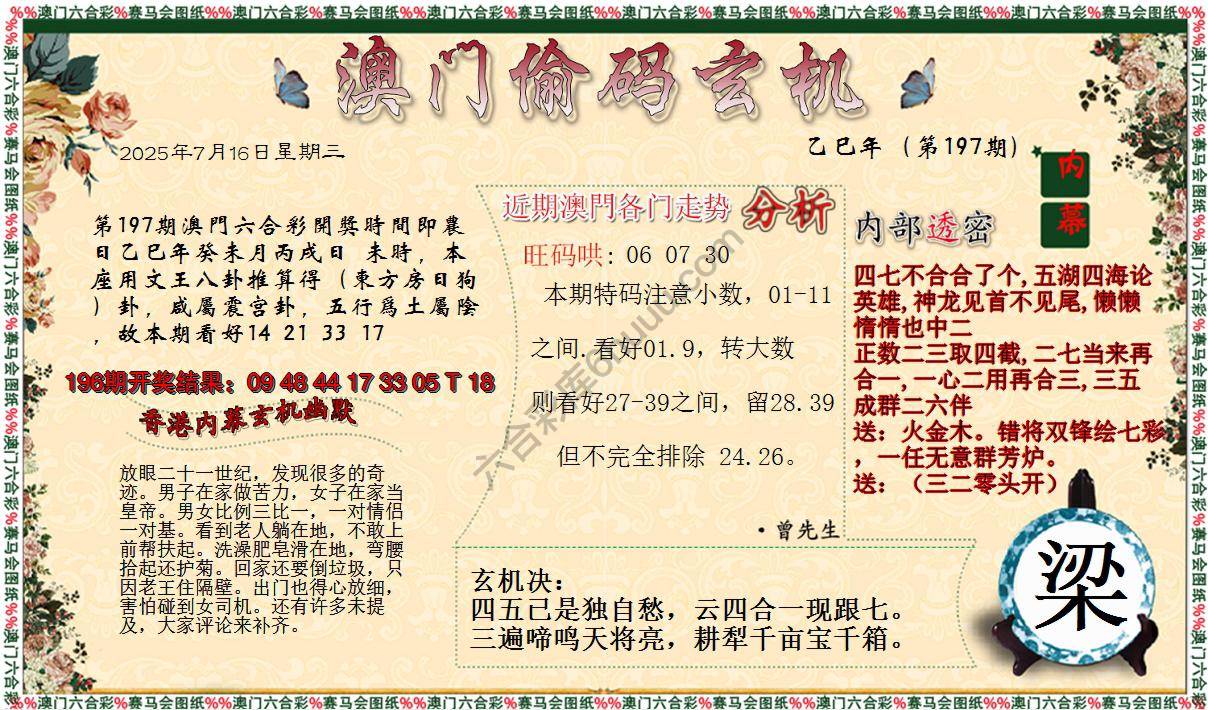 %%澳门六合彩%赛马会图纸%%澳门六合彩%赛马会图纸%%澳门六合彩%赛马会图纸%%澳门六合彩%赛马会图纸%%澳门六合彩%赛马会图纸%%澳门六合彩%赛马会图纸%%
澳门偷码玄机
2025年7月16日星期三
乙巳年（第197期）
内
幕
第197期澳門六合彩開獎時間即農
日乙巳年癸未月丙戌日 未時，本
座用文王八卦推算得（東方房日狗
）卦，咸屬震宫卦，五行爲土屬陰
，故本期看好14 21 33 17
196期开奖结果：09 48 44 17 33 05 T 18
香港内幕玄机幽默
放眼二十一世纪，发现很多的奇
迹。男子在家做苦力，女子在家当
皇帝。男女比例三比一，一对情侣
一对基。看到老人躺在地，不敢上
前帮扶起。洗澡肥皂滑在地，弯腰
拾起还护菊。回家还要倒垃圾，只
因老王住隔壁。出门也得心放细，
害怕碰到女司机。还有许多未提
及，大家评论来补齐。
近期澳門各门走势 分析
旺码哄: 06 07 30
本期特码注意小数，01-11
之间.看好01.9，转大数
则看好27-39之间，留28.39
但不完全排除 24.26。
·曾先生
内部透密
四七不合合了个,五湖四海论
英雄,神龙见首不见尾,懒懒
惰惰也中二
正数二三取四截,二七当来再
合一,一心二用再合三,三五
成群二六伴
送：火金木。错将双锋绘七彩
，一任无意群芳炉。
送：（三二零头开）
玄机决：
四五已是独自愁，云四合一现跟七。
三遍啼鸣天将亮，耕犁千亩宝千箱。
梁
%%澳门六合彩%赛马会图纸%%澳门六合彩%赛马会图纸%%澳门六合彩%赛马会图纸%%澳门六合彩%赛马会图纸%%澳门六合彩%赛马会图纸%%澳门六合彩%赛马会图纸%%